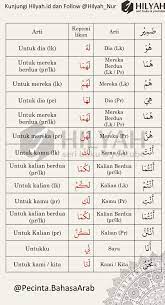 Kunjungi Hilyah.id dan Follow @Hilyah_Nur
HILYAH
Arti Arti ضَمِيْر
Untuk dia (lk) لَهُ Dia (Lk) هُوَ
Untuk mereka berdua (pr/lk) لَهُمَا Mereka Berdua (Lk/Pr) هُمَا
Untuk mereka (lk) لَهُمْ Mereka (Lk) هُمْ
Untuk dia (pr) لَهَا Dia (Pr) هِيَ
Untuk mereka berdua (pr/lk) لَهُمَا Mereka Berdua (Lk/Pr) هُمَا
Untuk mereka (pr) لَهُنَّ Mereka (Pr) هُنَّ
Untuk kamu (lk) لَكَ Kamu (Lk) أَنْتَ
Untuk kalian berdua (pr/lk) لَكُمَا Kalian Berdua (Lk/Pr) أَنْتُمَا
Untuk kalian (lk) لَكُمْ Kalian (Lk) أَنْتُمْ
Untuk kamu (pr) لَكِ Kamu (Pr) أَنْتِ
Untuk kalian berdua (pr/lk) لَكُمَا Kalian Berdua (Lk/Pr) أَنْتُمَا
Untuk kalian (pr) لَكُنَّ Kalian (Pr) أَنْتُنَّ
Untukku لِي Saya أَنَا
Untuk kami / kita لَنَا Kami / Kita نَحْنُ
@Pecinta.BahasaArab